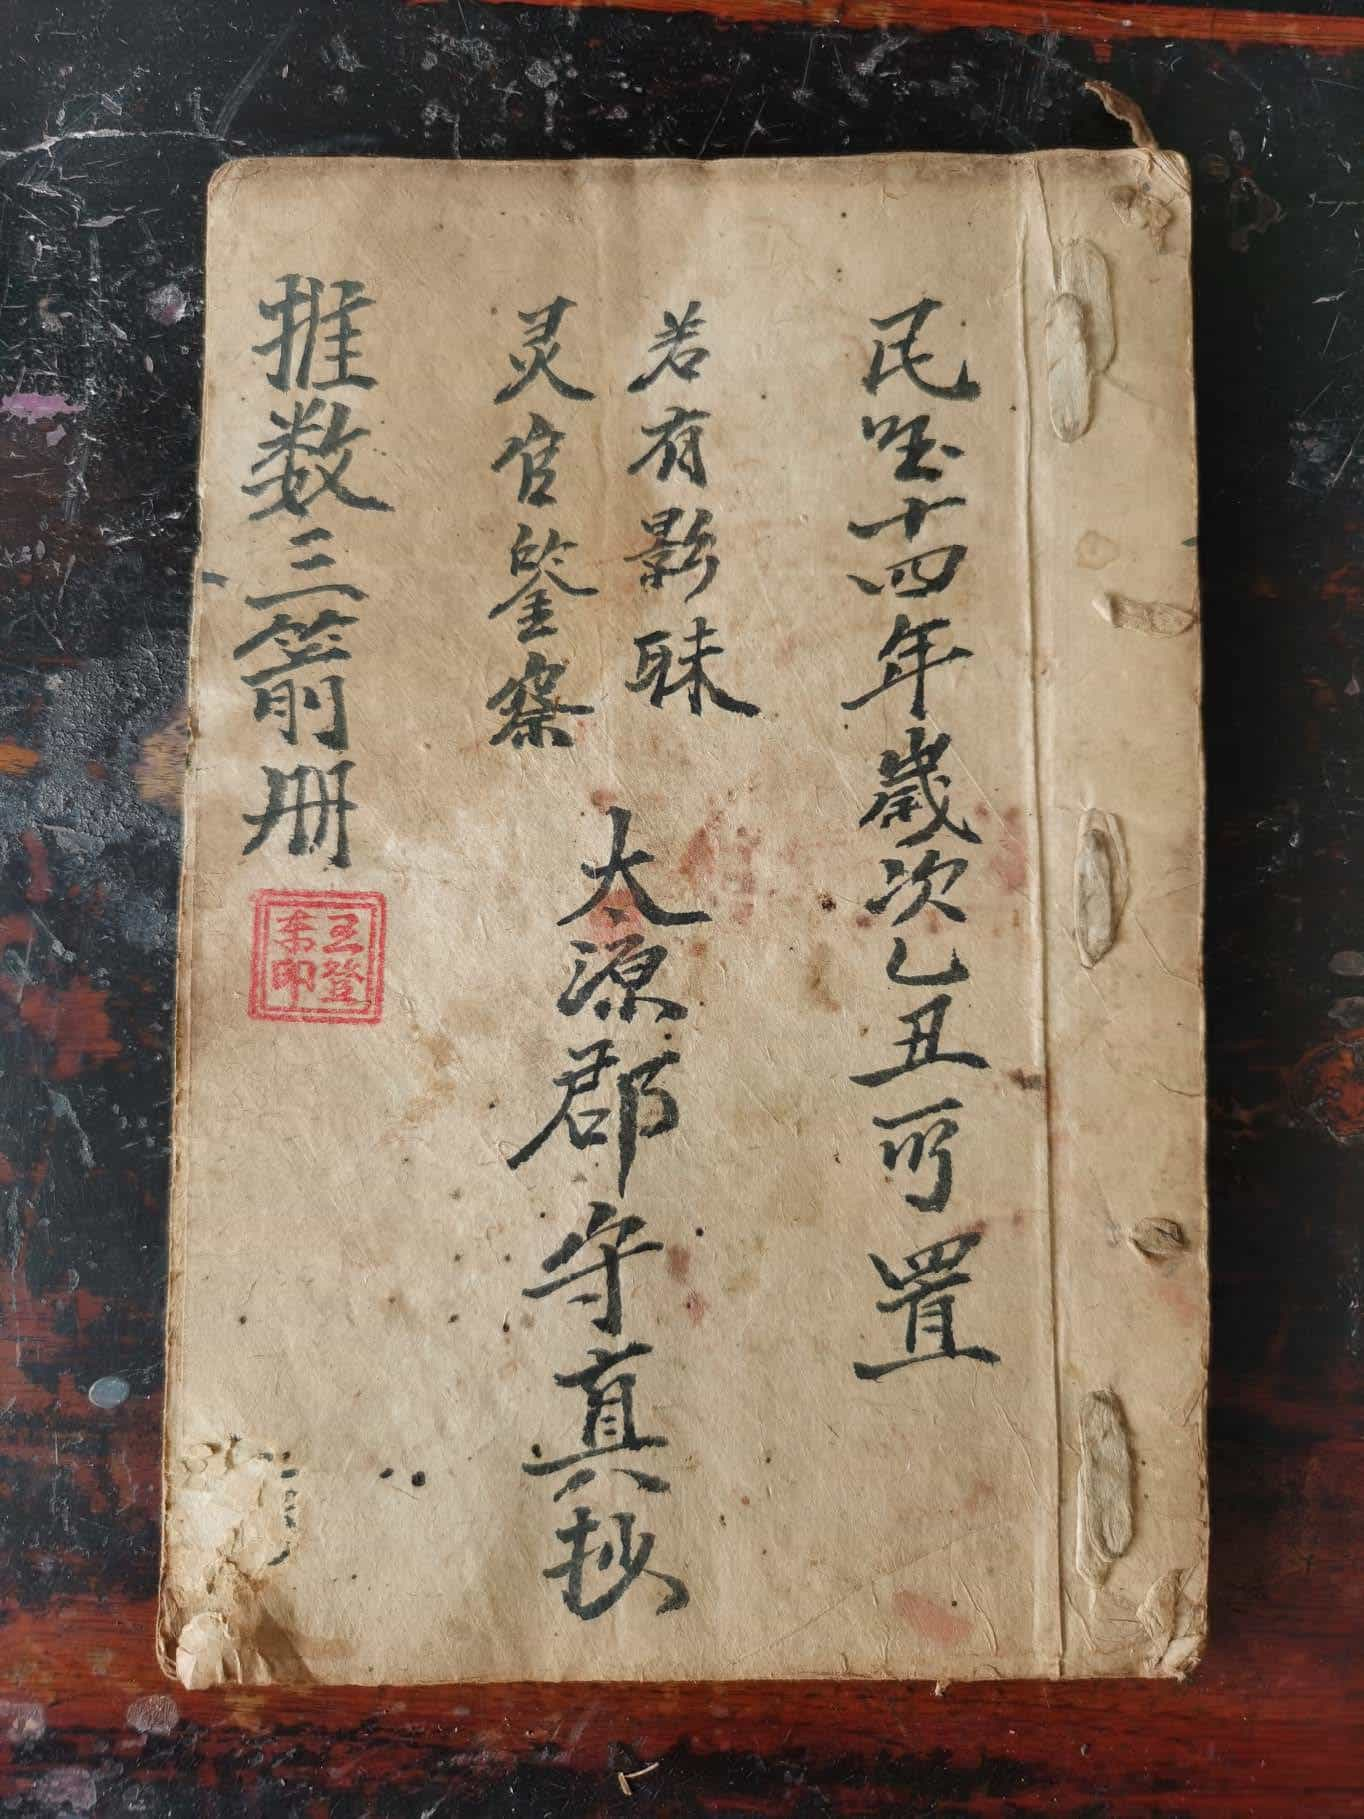 民囯十四年歲次乙丑所置
若有影昧
灵官鉴察
太源郡守真抄
推数三箭册
王登
来印